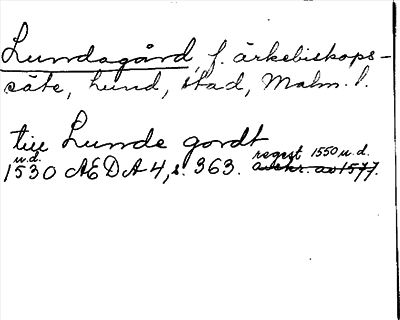 Lundagård, f. ärkebiskops-
säte, Lund, stad, Malm. l.
till Lunde gordt
u.d.
1530 AEDA 4, s. 363. regest 1550 u.d.
avskr. av 1577.